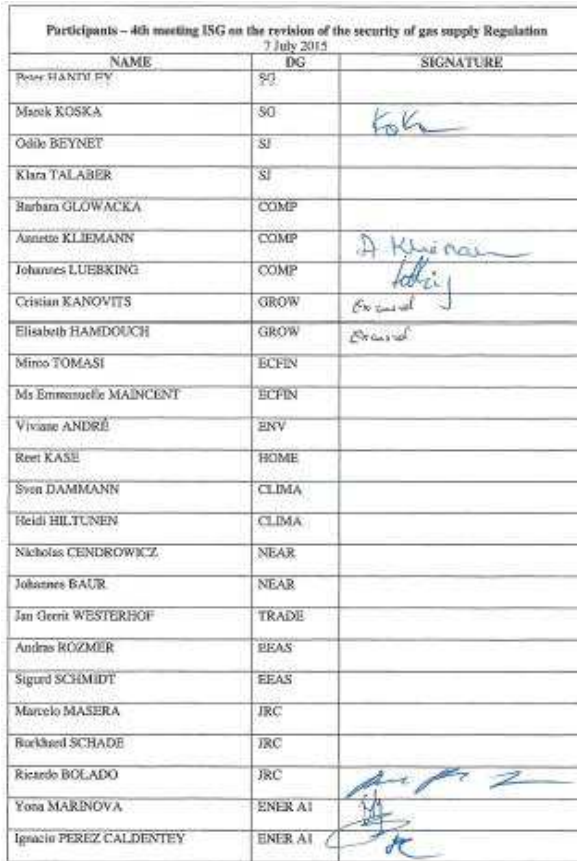 Participants – 4th meeting ISG on the revision of the security of gas supply Regulation
7 July 2015
NAME DG SIGNATURE
Peter HANDLEY SG
Marek KOSKA SG
Odile BEYNET SJ
Klara TALABER SJ
Barbara GLOWACKA COMP
Annette KLIEMANN COMP A. Kliemann
Johannes LUEBKING COMP
Cristian KANOVITS GROW Excused
Elisabeth HAMDOUCH GROW Excused
Mirco TOMASI ECFIN
Ms Emmanuelle MAINCENT ECFIN
Viviane ANDRÉ ENV
Reet KASE HOME
Sven DAMMANN CLIMA
Heidi HILTUNEN CLIMA
Nicholas CENDROWICZ NEAR
Johannes BAUR NEAR
Jan Gerrit WESTERHOF TRADE
Andras ROZMER EEAS
Sigurd SCHMIDT EEAS
Marcelo MASERA JRC
Burkhard SCHADE JRC
Ricardo BOLADO JRC
Yona MARINOVA ENER A1
Ignacio PEREZ CALDENTEY ENER A1